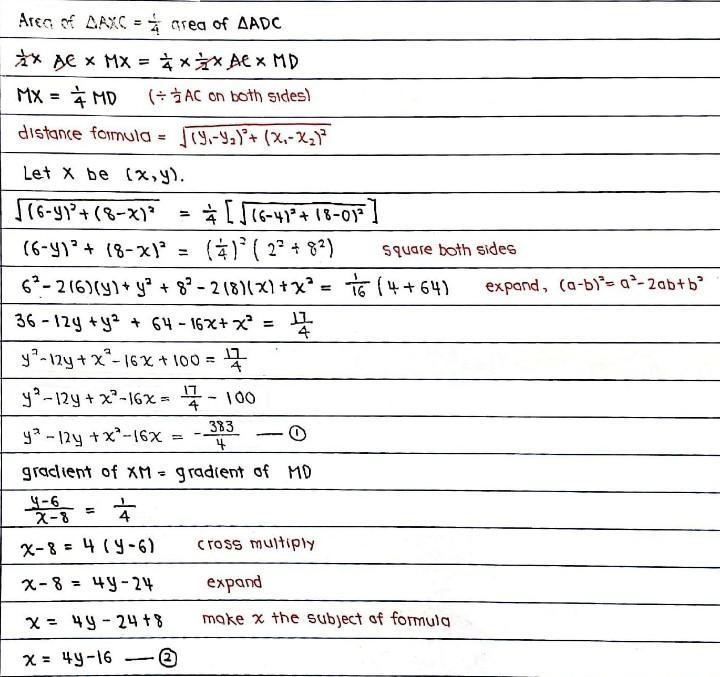 Area of ΔAXC = 1/4 area of ΔADC
1/2 × AC × MX = 1/4 × 1/2 × AC × MD
MX = 1/4 MD (÷ 1/2 AC on both sides)
distance formula = √((y₁-y₂)² + (x₁-x₂)²)
Let X be (x,y).
√((6-y)² + (8-x)²) = 1/4 [√((6-4)² + (8-0)²)]
(6-y)² + (8-x)² = (1/4)² (2² + 8²) square both sides
6² - 2(6)(y) + y² + 8² - 2(8)(x) + x² = 1/16 (4 + 64) expand, (a-b)² = a² - 2ab + b²
36 - 12y + y² + 64 - 16x + x² = 17/4
y² - 12y + x² - 16x + 100 = 17/4
y² - 12y + x² - 16x = 17/4 - 100
y² - 12y + x² - 16x = - 383/4 — ①
gradient of XM = gradient of MD
(y-6)/(x-8) = 1/4
x - 8 = 4 (y - 6) cross multiply
x - 8 = 4y - 24 expand
x = 4y - 24 + 8 make x the subject of formula
x = 4y - 16 — ②